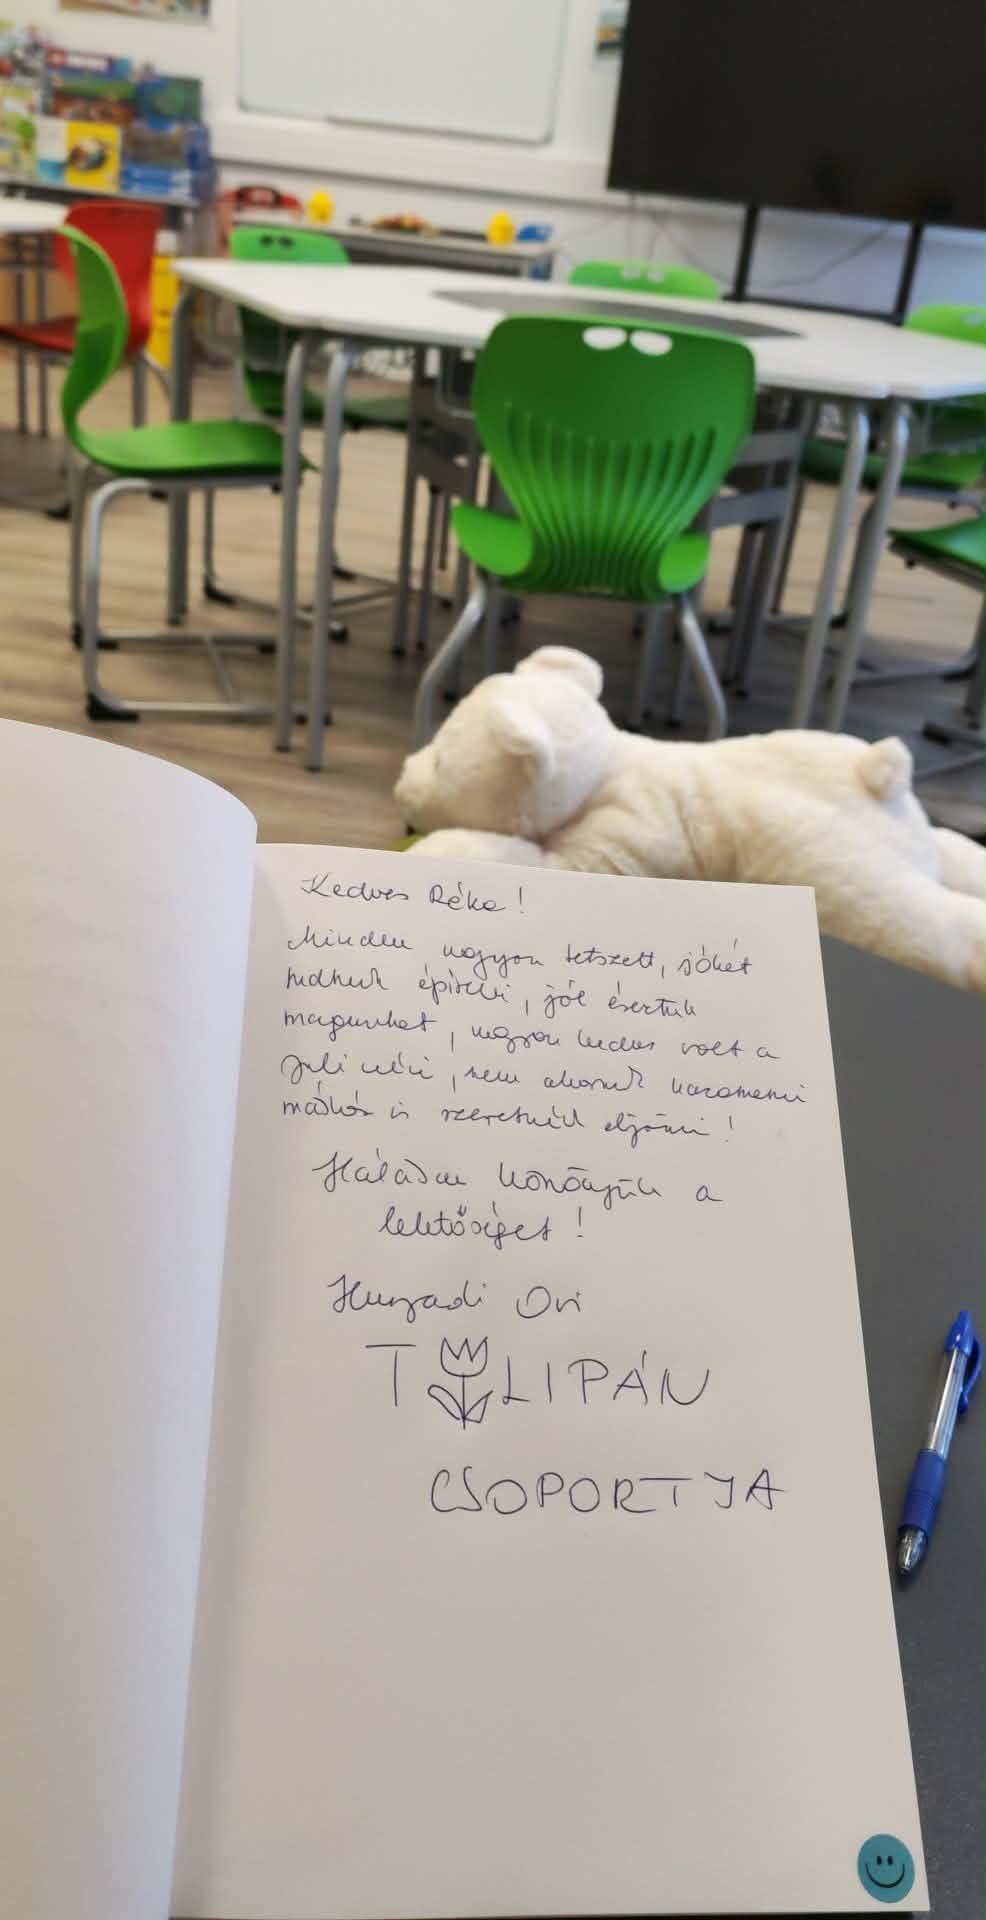 Kedves Réka!
Minden nagyon tetszett, jókat
tudtunk építeni, jól éreztük
magunkat, nagyon kedves volt a
Juli néni, nem akarunk hazamenni
máskor is szeretnénk eljönni!
Hálásan köszönjük a
lehetőséget!
Hunyadi Ovi
TULIPÁN
CSOPORTJA